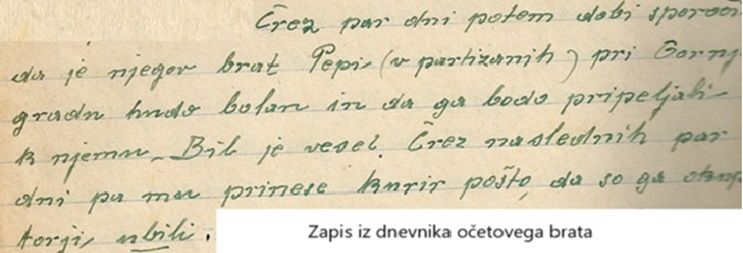 Črez par dni potem dobi sporoči
da je njegov brat Pepi (v partizanih) pri Gornj
gradu hudo bolan in da ga bodo pripeljali
k njemu. Bil je vesel. Črez naslednih par
dni pa mu prinese kurir pošto, da so ga okup
torji ubili.
Zapis iz dnevnika očetovega brata